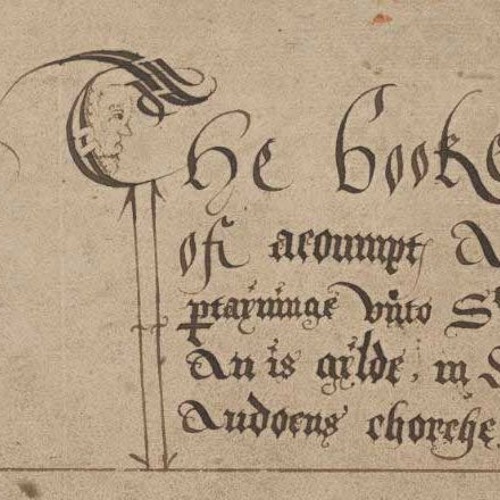 The booke
of acoumpt A
ptayninge vnto S
An is gylde, in S
Audoens chorche